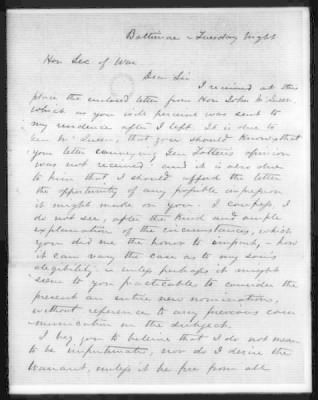 Baltimore Tuesday Night
Hon Sec of War
Dear Sir
I received at this
place the enclosed letter from Hon John
which as you will perceive was sent to
my residence after I left. It is due to
that you should know that
your letter conveying Gen Totten's opinion
was not received, and it is also due
to him that I should afford the letter
the opportunity of any possible impression
it might make on you. I confess I
do not see, after the kind and ample
explanation of the circumstances, which
you did me the honor to, how
it can vary the case as to my son's
eligibility, unless perhaps it might
seem to you practicable to consider the
present an entire new nomination,
without reference to any previous com-
munication on the subject.
I beg you to believe that I do not mean
to be importunate, nor do I desire the
warrant, unless it be free from all